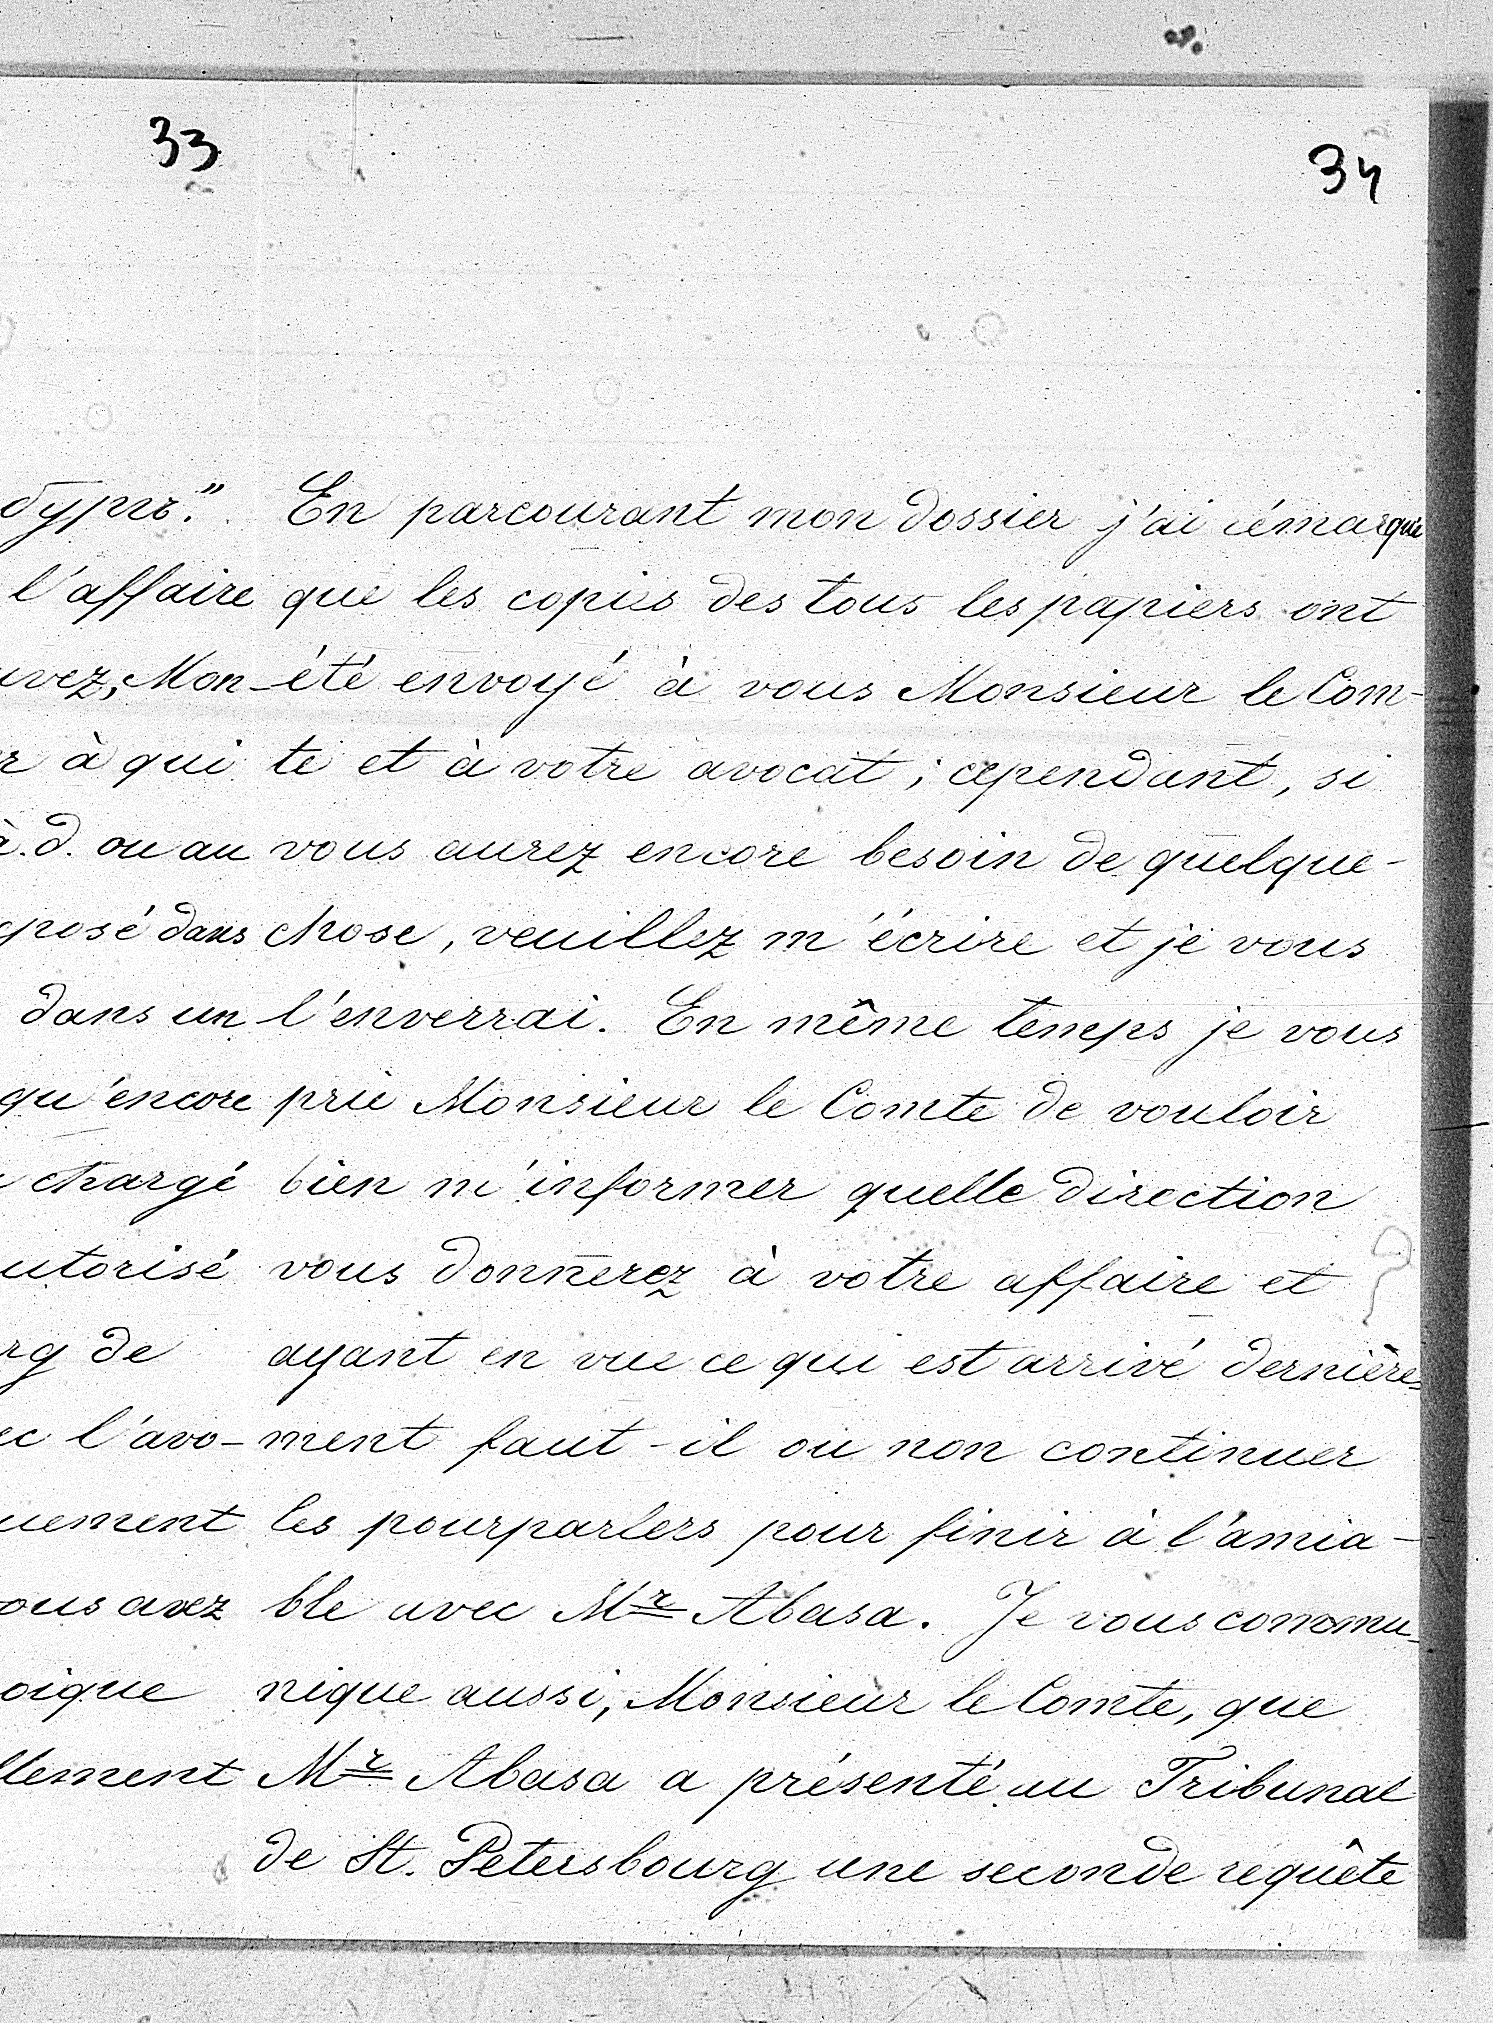 33
бургъ".
l'affaire
uvez, Mon-
r à qui
à.d. ou au
posé dans
dans un
qu'encore
chargé
utorisé
rg de
ec l'avo-
uement
ous avez
oique
llement
34
En parcourant mon dossier j'ai rémarque
que les copies des tous les papiers ont
été envoyé à vous Monsieur le Com-
te et à votre avocat; cependant, si
vous aurez encore besoin de quelque-
chose, veuillez m'écrire et je vous
l'enverrai. En même temps je vous
prie Monsieur le Comte de vouloir
bien m'informer quelle direction
vous donnerez à votre affaire et
ayant en vue ce qui est arrivé dernière-
ment faut-il ou non continuer
les pourparlers pour finir à l'amia-
ble avec Mr Abasa. Je vous commu-
nique aussi, Monsieur le Comte, que
Mr Abasa a présenté au Tribunal
de St. Petersbourg une seconde requête